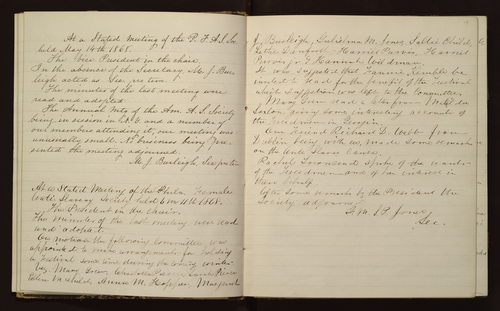 At a Stated Meeting of the P. F. A. S. So.
held May 14th 1868.
The Vice President in the chair.
In the absence of the Secretary, M. J. Bur-
leigh acted as Sec. pro tem.
The minutes of the last meeting were
read and adopted.
The Annual Meeting of the Am. A. S. Society
being in session in and a number of
our members attending it, our meeting was
unusually small. No business being pre-
sented the meeting adjourned.
M. J. Burleigh, Sec pro tem
At a Stated Meeting of the Phila. Female
Anti Slavery Society held 6 mo 11th 1868.
The President in the chair.
The Minutes of the last meeting were read
and adopted.
On motion the following Committee was
appointed to make arrangements for holding
a festival some time during the coming winter
viz. Mary Grew, Charlotte Peirce, Sarah Peirce
M. Hopper, Margaret
J. Burleigh, Gulielma M. Jones, Sallie Child,
Harriet Purvis, Harriet
Purvis Jr., Hannah Wildman.
It was suggested that Fannie Kemble be
invited to read for the benefit of the festival
which suggestion was left to the Committee.
Mary Grew read a letter from
giving some interesting accounts of
the Freedmen in Georgia.
Our friend Richard D. Webb from
Dublin being with us, made some remarks
on the Anti Slavery Cause.
Rachel Townsend spoke of the wants
of the Freedmen and of her
their behalf.
After some remarks by the President the
Society adjourned.
G. M. S. P. Jones
Sec.